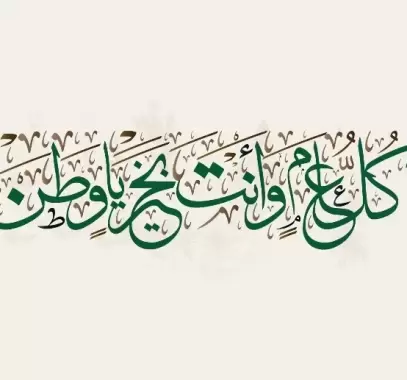 كُلُّ عَامٍ وَأَنْتَ بِخَيْرٍ يَا وَطَن